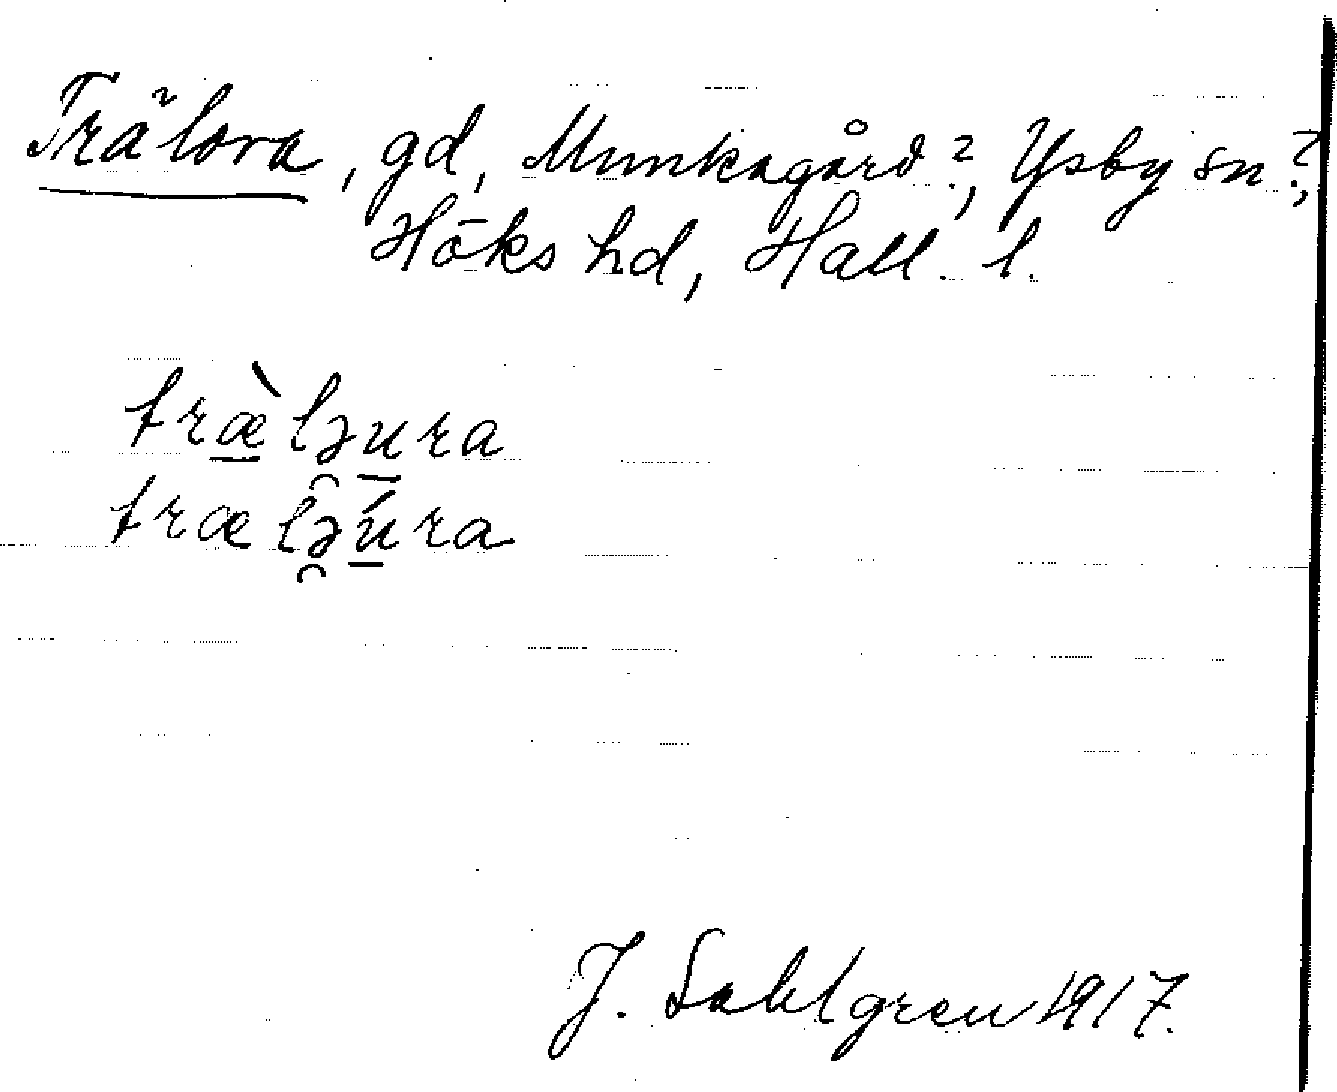 Trälora, gd, Munkagård?, Ysby sn?,
Höks hd, Hall. l.
træ̀lə̯ura
trælə̯úra
J. Sahlgren 1917.